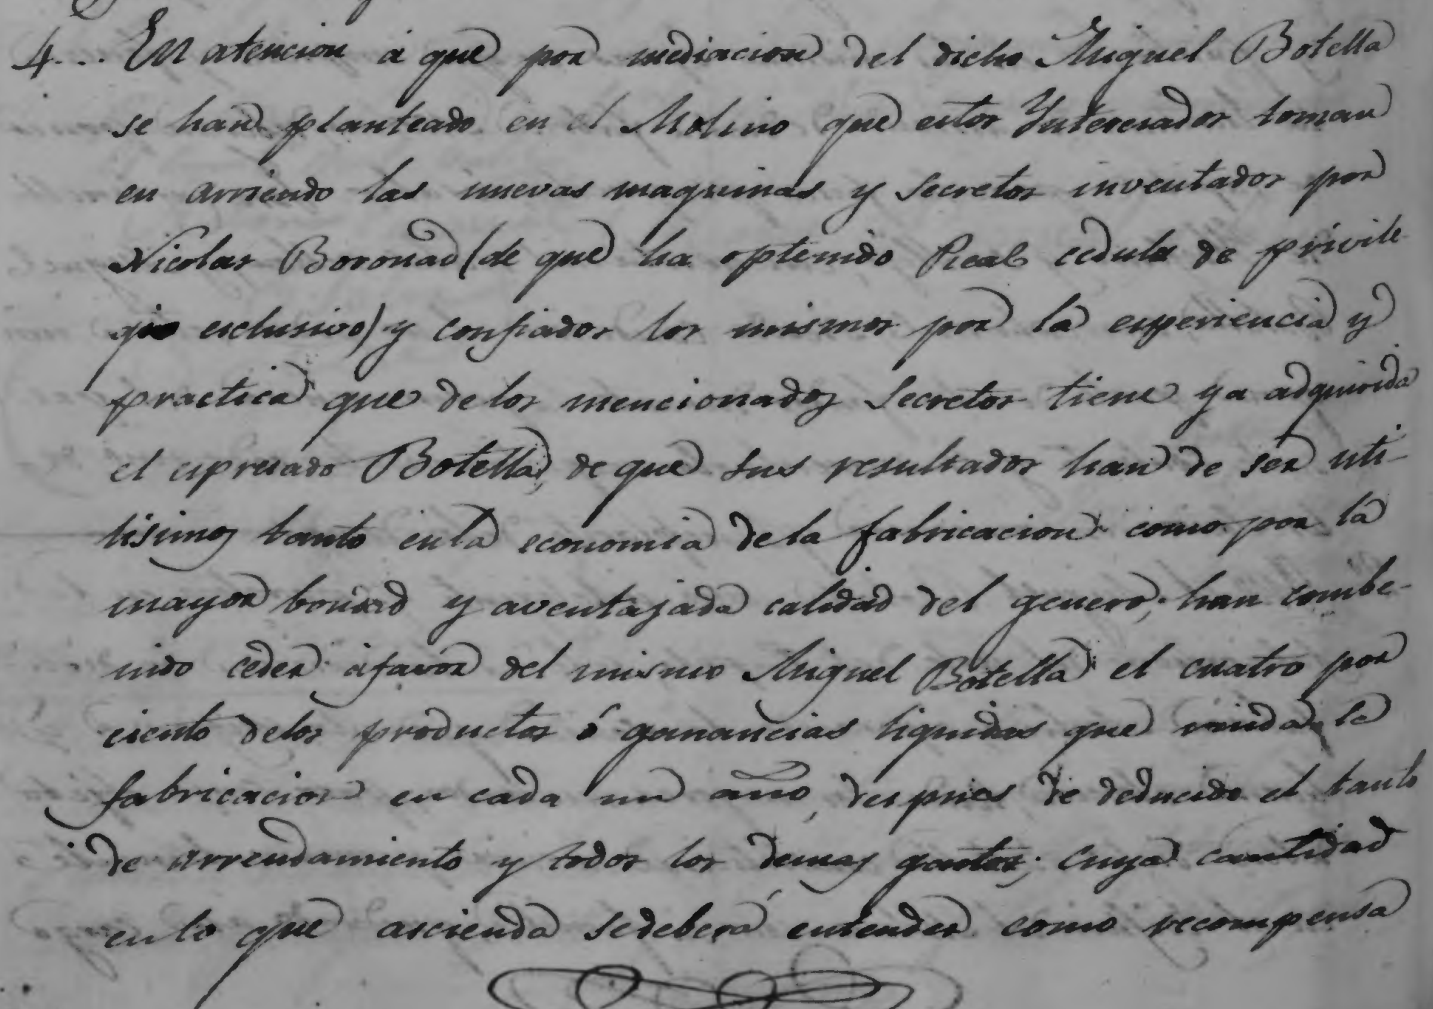 4... En atencion á que por mediacion del dicho Miguel Botella
se han planteado en el Molino que estos Interesados toman
en arriendo las nuevas maquinas y secretos inventados por
Nicolas Boronad (de que ha optenido Real cedula de privile-
gio esclusivo) y confiados los mismos por la esperiencia y
practica que delos mencionados secretos tiene ya adquirida
el espresado Botella, de que sus resultados han de ser uti-
lisimos tanto enla economia dela fabricacion como por la
mayor bondad y aventajada calidad del genero; han combe-
nido ceder áfavor del mismo Miguel Botella el cuatro por
ciento delos productos ó ganancias liquidas que rinda la
fabricacion en cada un año, despues de deducido el tanto
de arrendamiento y todos los demas gastos; cuya cantidad
enlo que ascienda sedeberá entender como recompensa